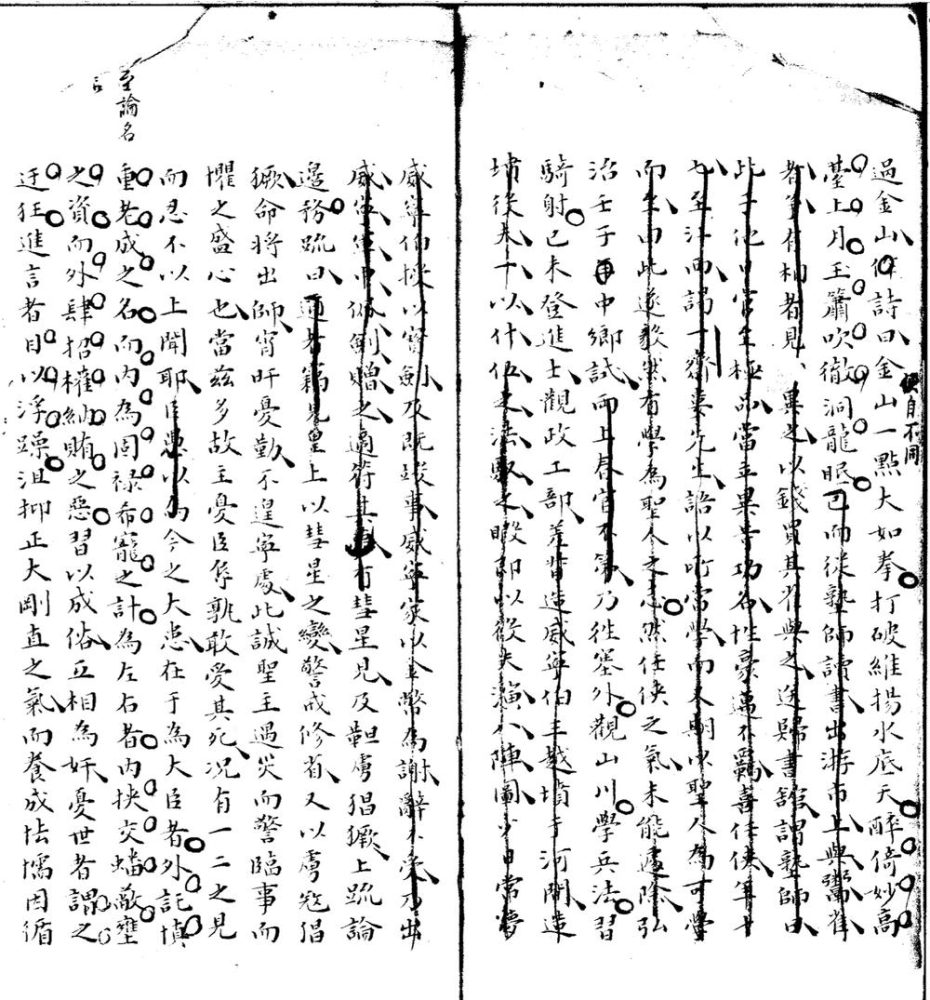 過金山作詩曰金山一點大如拳打破維揚水底天醉倚妙高
臺上月玉簫吹徹洞龍眠已而從塾師讀書出游市上與鬻雀
者爭有相者見異之以錢買其雀與之送歸書館謂塾師曰
此子他日官至極品當立異等功名性豪邁不羈喜任俠年十
七至江西謁一齋婁先生語以所當學而又期以聖人為可學
而至由此遂毅然有學為聖人之志然任俠之氣未能遽除弘
治壬子中鄉試而上春官不第乃往塞外觀山川學兵法習
騎射己未登進士觀政工部差督造威寧伯王越墳于河間造
墳役夫十以什伍之法馭之暇即以役夫演八陣圖少日常夢
威寧伯授以寶劍及既竣事威寧家以金幣為謝辭不受乃出
威寧軍中佩劍贈之適符其夢有彗星見及韃虜猖獗上疏論
邊務疏曰邇者竊見皇上以彗星之變警戒修省又以虜寇猖
獗命將出師宵旰憂勤不遑寧處此誠聖主遇災而警臨事而
懼之盛心也當茲多故主憂臣辱孰敢愛其死況有一二之見
而忍不以上聞耶臣愚以為今之大患在于為大臣者外託慎
重老成之名而內為固祿希寵之計為左右者內挾交蟠蔽壅
之資而外肆招權納賄之惡習以成俗互相為奸憂世者謂之
迂狂進言者目以浮躁沮抑正大剛直之氣而養成怯懦因循
便自不同
至論名
言